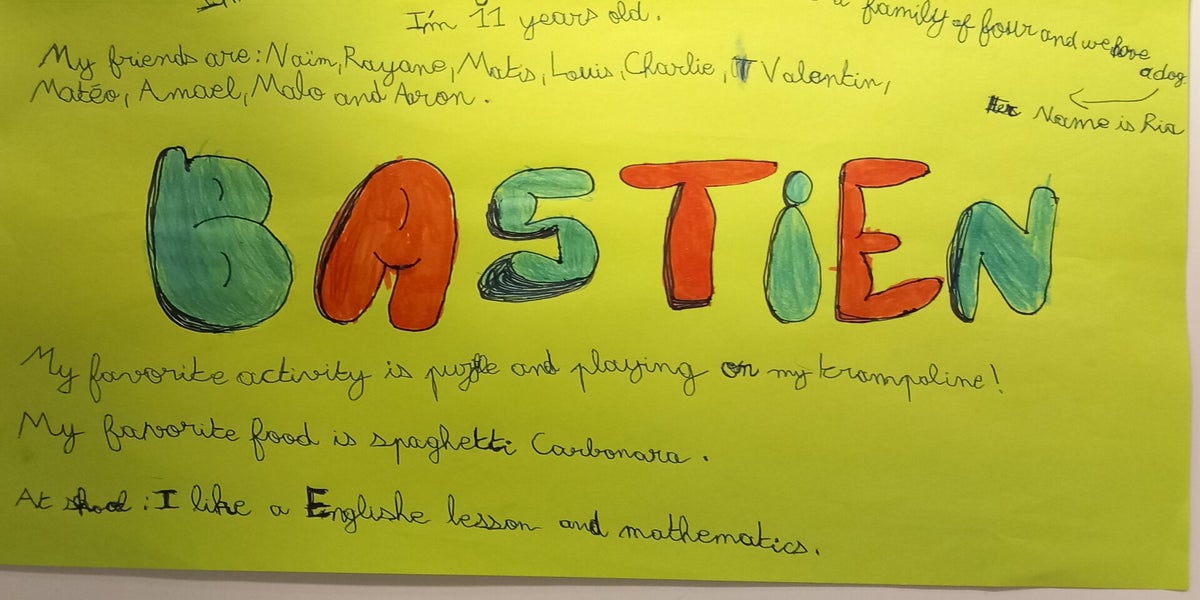 I'm 11 years old.
a family of four and we have
a dog.
Her Name is Ria
My friends are: Naïm, Rayane, Matis, Louis, Charlie, Valentin,
Matéo, Amael, Malo and Aaron.
BASTiEN
My favorite activity is puzzle and playing on my trampoline!
My favorite food is spaghetti Carbonara.
At school: I like a Englishe lesson and mathematics.